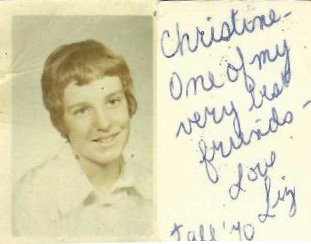 Christone-
One of my
very best
friends-
Love
Liz
Fall '70